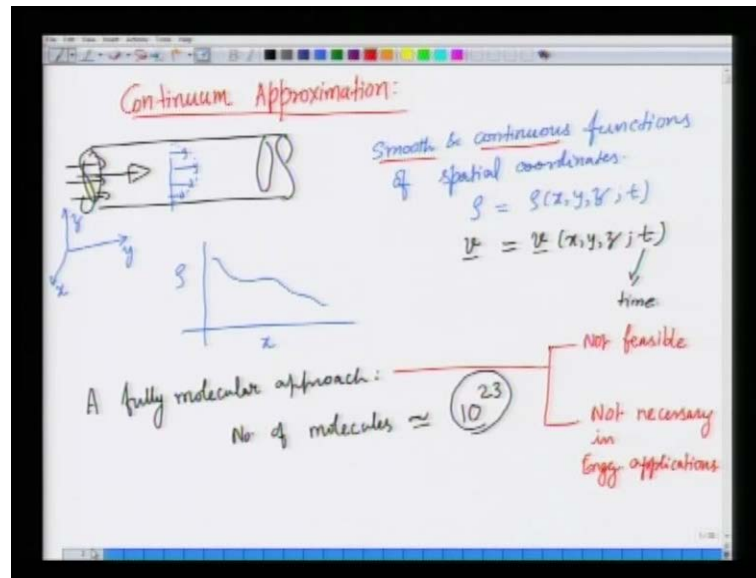 Continuum Approximation:
Smooth & continuous functions
of spatial coordinates.
ρ = ρ(x, y, z; t)
v = v (x, y, z; t)
time
z
y
x
ρ
x
A fully molecular approach:
No of molecules ≃ 10^23
Not feasible
Not necessary
in
Engg. applications